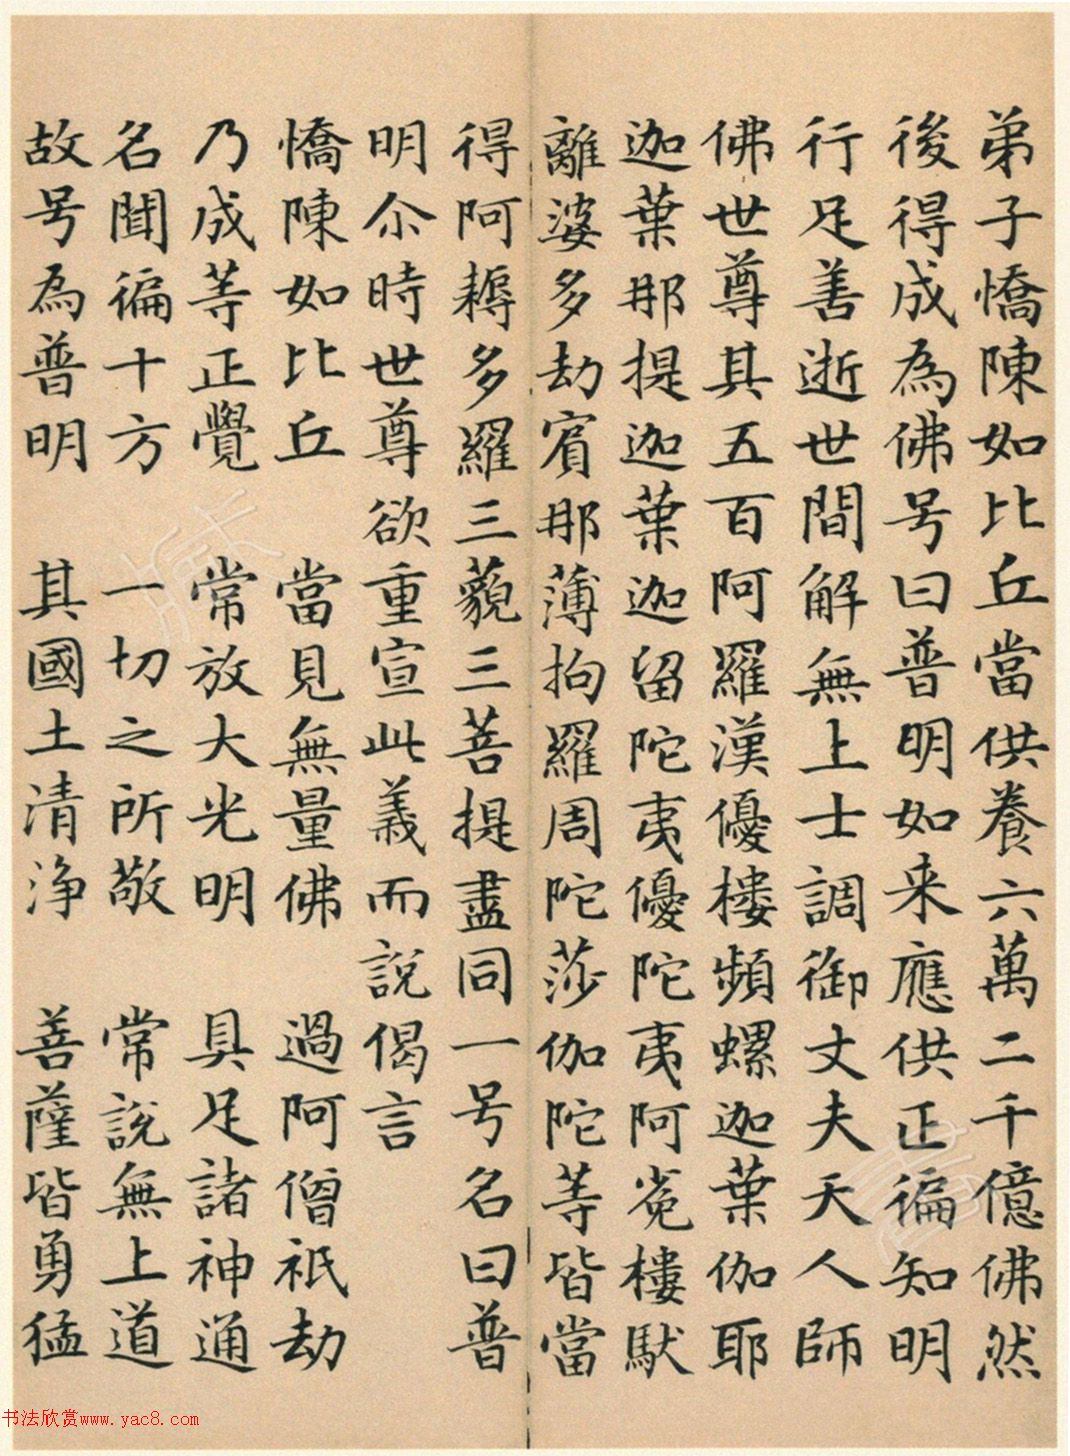 弟子憍陳如比丘當供養六萬二千億佛然
後得成為佛号曰普明如来應供正徧知明
行足善逝世間解無上士調御丈夫天人師
佛世尊其五百阿羅漢優樓頻螺迦葉伽耶
迦葉那提迦葉迦留陀夷優陀夷阿㝹樓馱
離婆多劫賓那薄拘羅周陀莎伽陀等皆當
得阿耨多羅三藐三菩提盡同一号名曰普
明尒時世尊欲重宣此義而說偈言
憍陳如比丘 當見無量佛 過阿僧祇劫
乃成等正覺 常放大光明 具足諸神通
名聞徧十方 一切之所敬 常說無上道
故号為普明 其國土清淨 菩薩皆勇猛
书法欣赏www.yac8.com